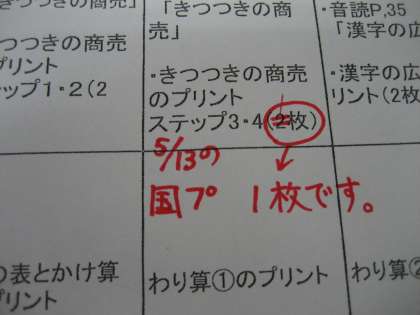 きつつきの商売」
つつきの商売
プリント
ップ1・2(2
「きつつきの商
売」
・きつつきの商売
のプリント
ステップ3・4(2枚)
・音読P,35
「漢字の広
・漢字の広
リント(2枚
5/13の
国プ 1枚です。
の表とかけ算
プリント
わり算①のプリント
わり算②